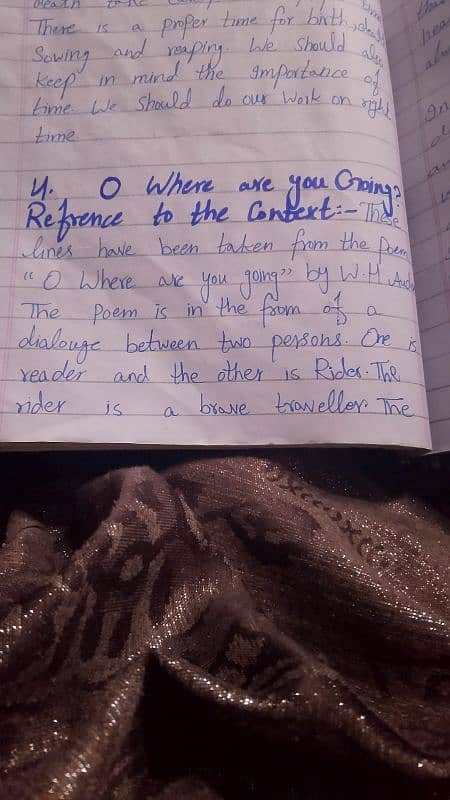 death
There is a proper time for birth, death
Sowing and reaping. We should also
keep in mind the importance of
time. We should do our work on right
time.
4. O Where are you Going?
Refrence to the Context:- These
lines have been taken from the Poem
"O Where are you going" by W.H. Auden
The Poem is in the from of a
dialouge between two persons. One is
reader and the other is Rider. The
rider is a brave traveller. The